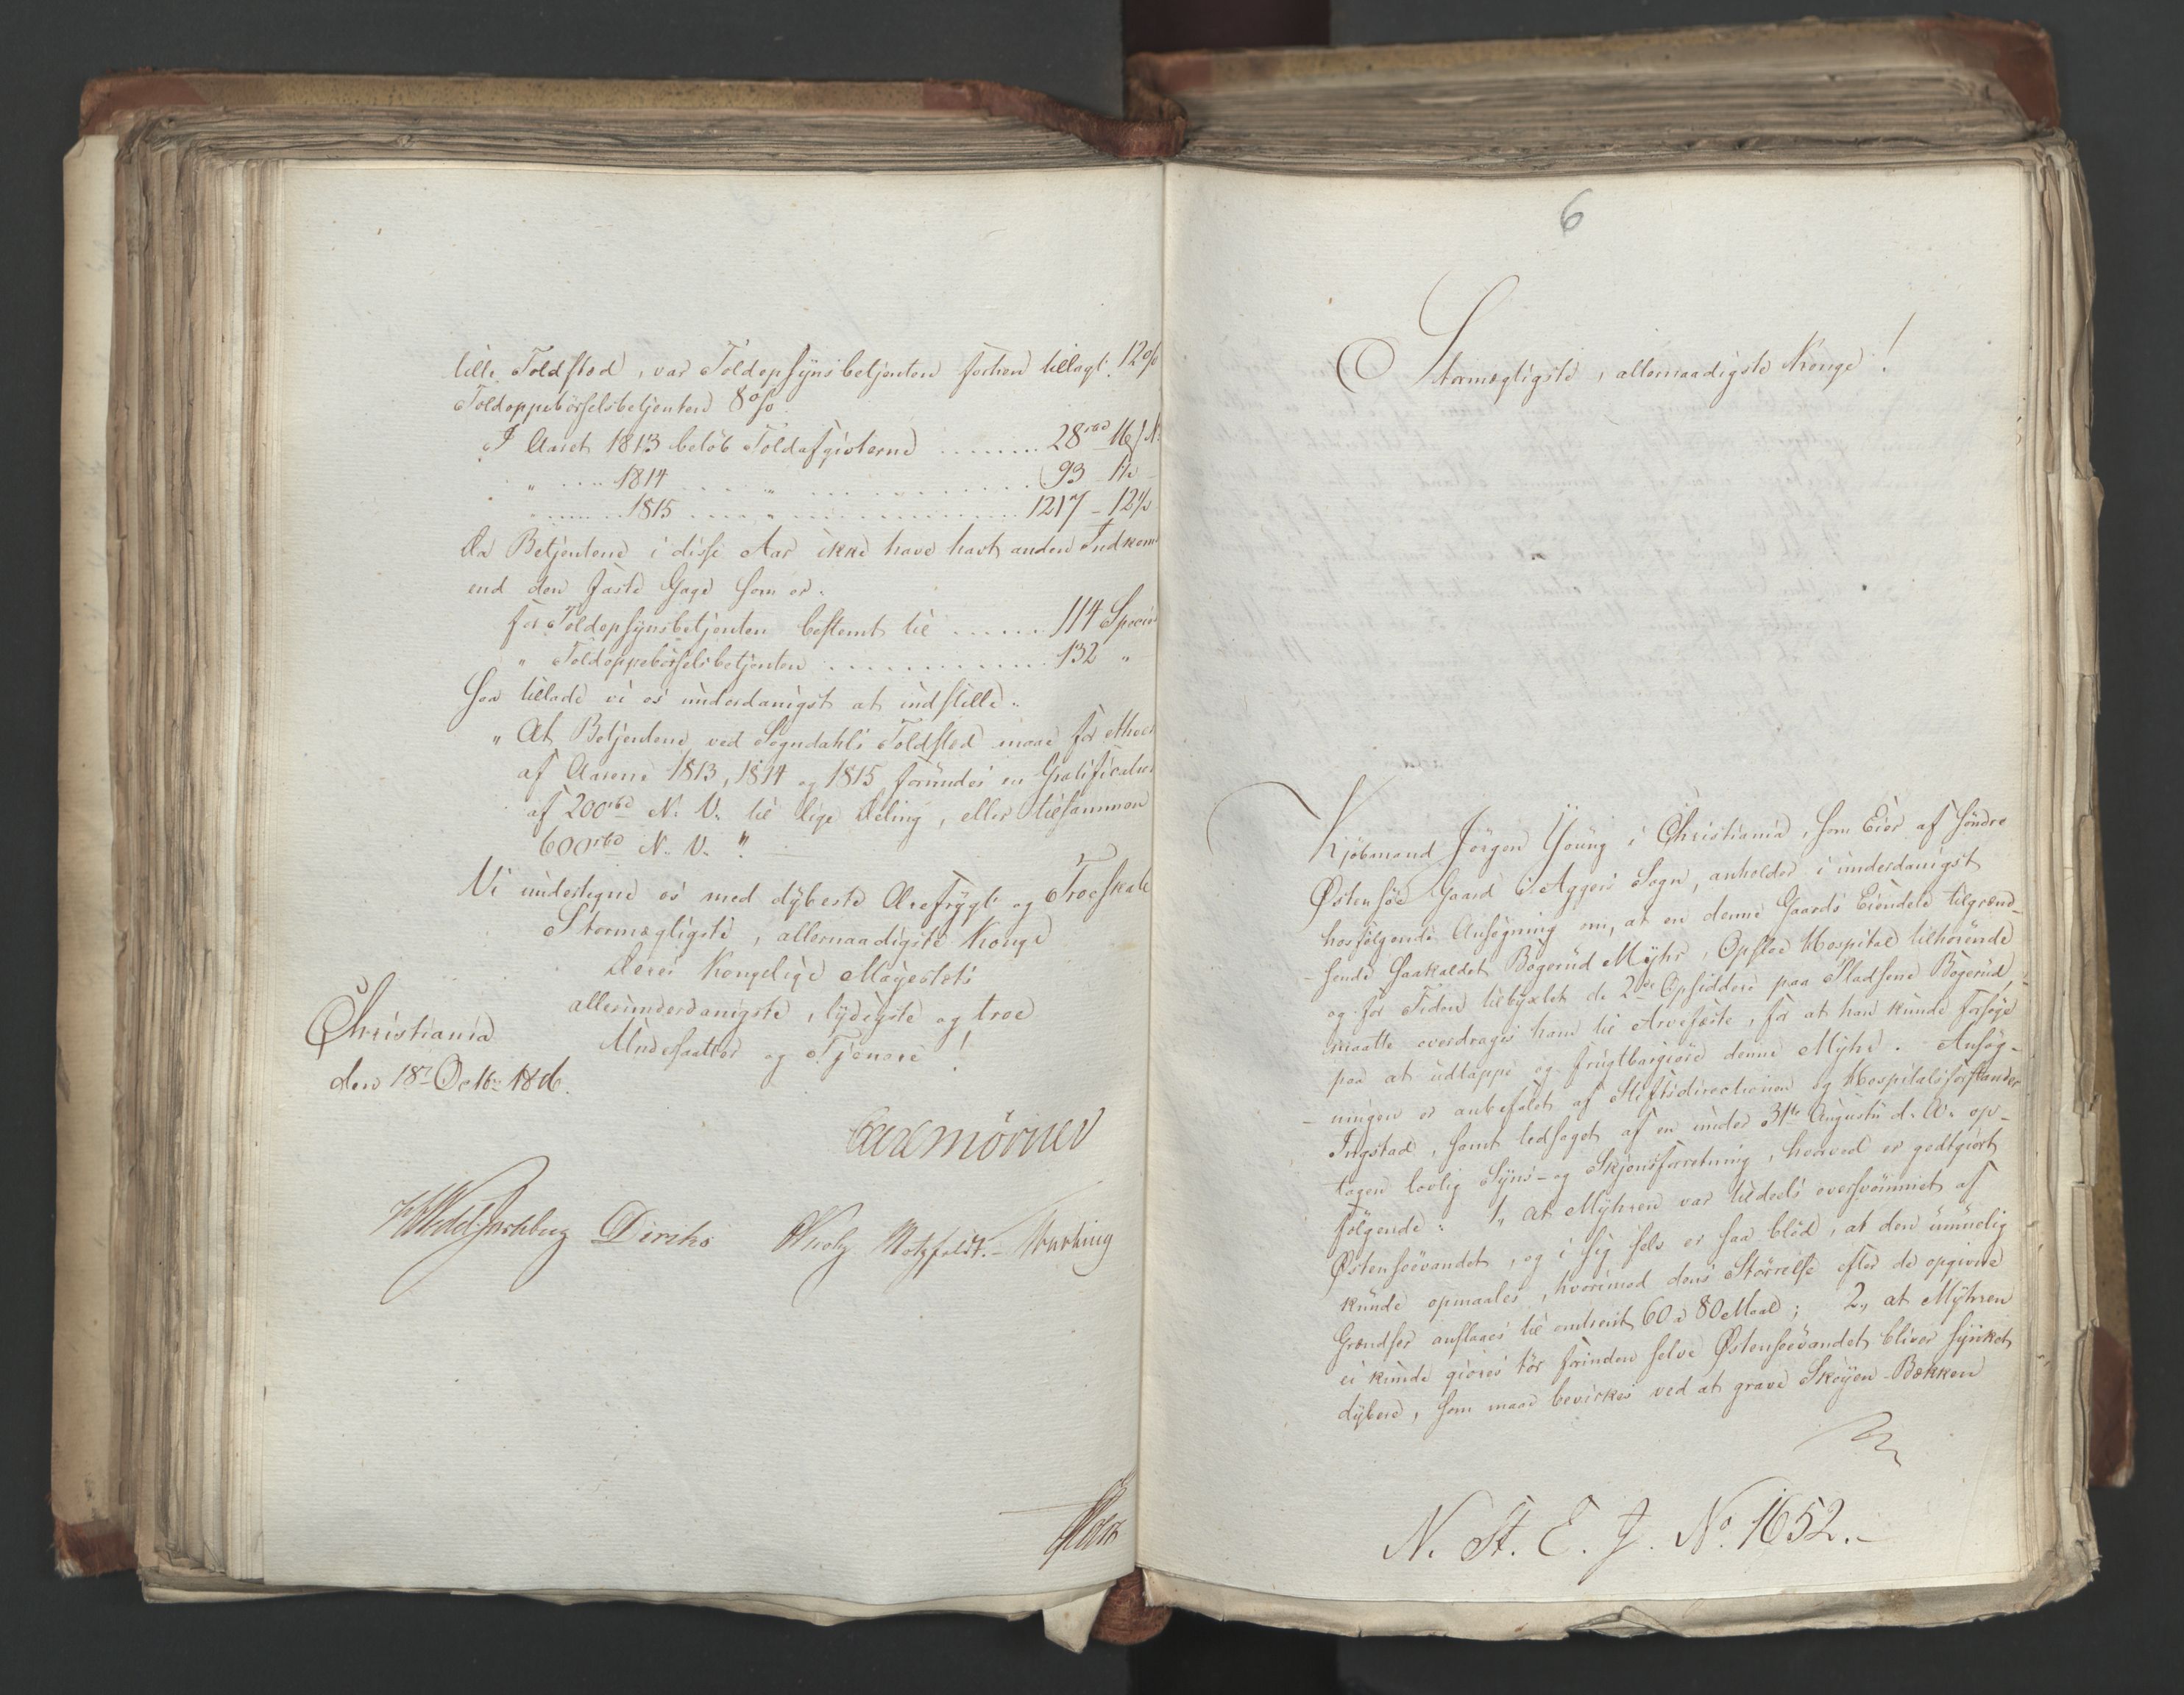 lille Toldsted, var Toldopsynsbetjenten forhen tillagt 12%
Toldoppebörselsbetjenten 8%.
I Aaret 1813 beløb Toldafgivterne ........ 28 rbd
" .... 1814 .... " .... 93
" .... 1815 .... " .... 1217 - 12
Da Betjentene i disse Aar ikke have havt anden Indkom
end den faste Gage som er:
for Toldopsynsbetjenten bestemt til ...... 114 Species
" Toldoppebörselsbetjenten ............ 132 "
saa tillade vi os underdanigst at indstille:
" At Betjentene ved Sogndahls Toldsted maae for ethvert
af Aarene 1813, 1814 og 1815 forundes en Gratification
af 200 rbd N. V. til lige Deling, eller tilsammen
600 rbd N. V. "
Vi undertegne os med dybeste Ærefrygt og Troeskab
Stormægtigste, allernaadigste Konge
Deres Kongelige Majestets
allerunderdanigste, lydigste og troe
Undersaatter og Tjenere!
Christiania
den 18de Octbr 1816.
Carl Mörner
HWedelJarlsberg Diriks Krohg Motzfeldt.
6
Stormægtigste, allernaadigste Konge!
Kjöbmand Jörgen Young i Christiania, som Eier af söndre
Østensöe Gaard i Aggers Sogn, anholder i underdanigst
hosfölgende Ansögning om, at en denne Gaards Eiendele tilgrænd-
-sende saakaldet Bögerud Myhr, Opsloe Hospital tilhörende
og for Tiden tilbyxlet de 2de Opsiddere paa Pladsene Bögerud,
maatte overdrages ham til Arvefæste, for at han kunde forsöge
paa at udtappe og frugtbargiøre denne Myhr. Ansög-
-ningen er anbefalet af Stiftsdirectionen og Hospitalsforstander
Ingstad, samt ledsaget af en under 31te Augusti d. A. op-
tagen lovlig Syns- og Skjönsforretning, hvorved er godtgiort
fölgende: 1, at Myhren var tildeels oversvömmet af
Østensöevandet, og i sig selv er saa blöd, at den umuelig
kunde opmaales, hvorimod dens Störrelse efter de opgivne
Grændser anslaaes til omtrent 60 a 80 Maal; 2, at Myhren
ei kunde giöres tör forinden selve Østensöevandet bliver synket
dybere, som maae bevirkes ved at grave Sköyen-Bækken
N. St. E. J. No. 1652.-